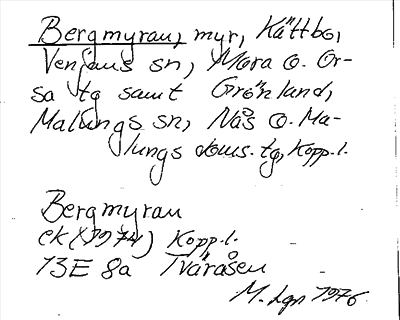 Bergmyran, myr, Kättbo,
Venjans sn, Mora o. Or-
sa tg samt Grönland,
Malungs sn, Nås o. Ma-
lungs doms. tg, Kopp. l.
Bergmyran
ek (1974) Kopp. l.
13E 8a Tväråsen
M. Lgn 1976